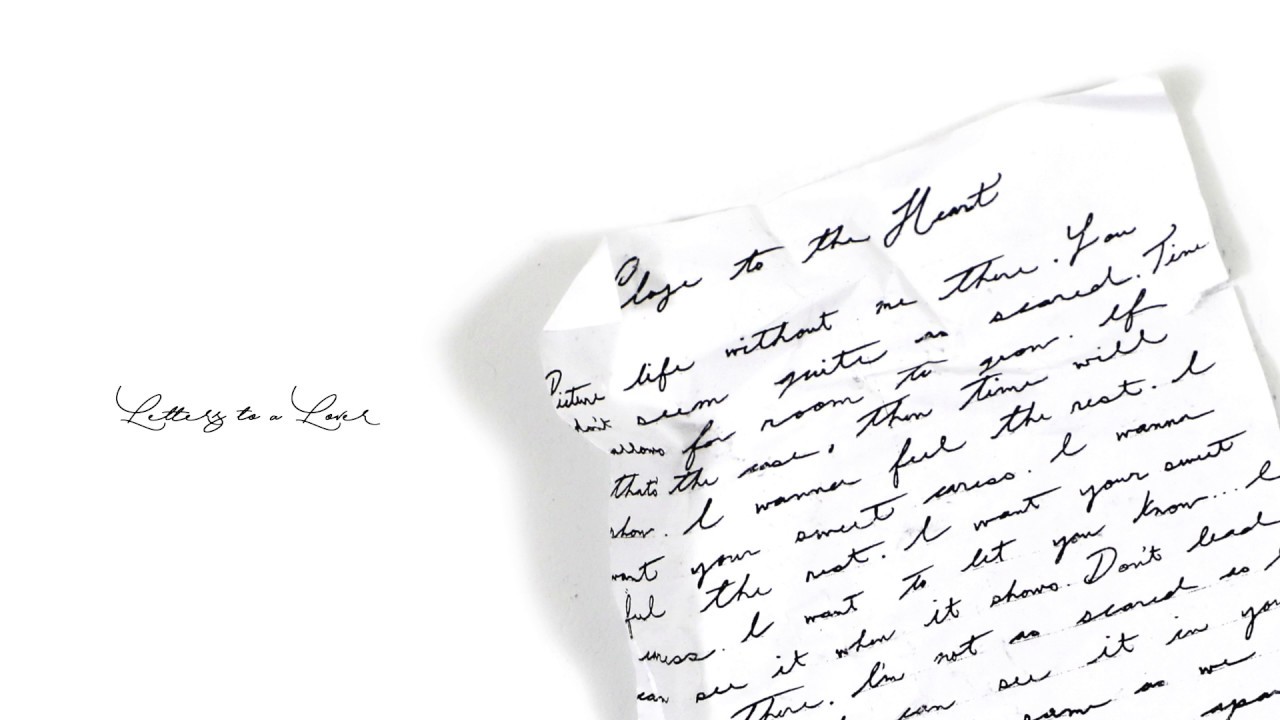 Letters to a Lover
Close to the Heart
Picture life without me there. You
don't seem quite as scared. Time
allows for room to grow. If
that's the case, then time will
show. I wanna feel the rest. I
want your sweet caress. I wanna
feel the rest. I want your sweet
caress. I want to let you know... I
can see it when it shows. Don't lead
there. I'm not as scared as
can see it in you
same as we
apa